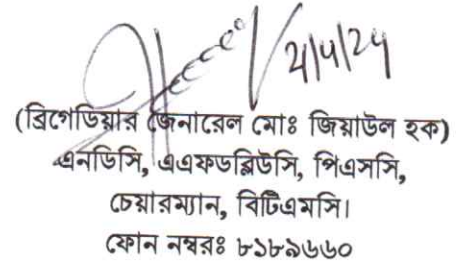 (ব্রিগেডিয়ার জেনারেল মোঃ জিয়াউল হক)
এনডিসি, এএফডব্লিউসি, পিএসসি,
চেয়ারম্যান, বিটিএমসি।
ফোন নম্বরঃ ৮১৮৯৬৬০